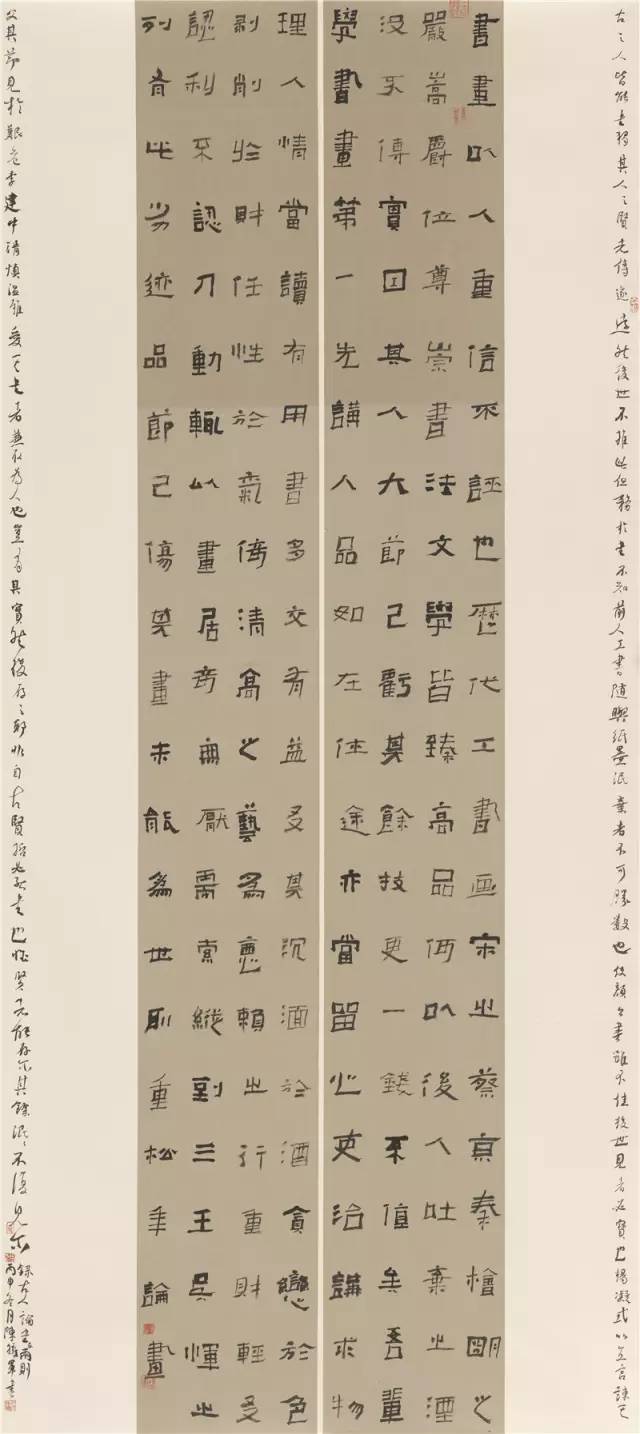 書畫以人重信不誣也歷代工書画宋之蔡京秦檜明之
嚴嵩爵位尊崇書法文學皆臻高品何以後人吐棄之湮
没不傳實因其人大節已虧其餘技更一錢不值矣吾輩
學書畫第一先講人品如在仕途亦當留心吏治講求物
理人情當讀有用書多交有益友其沉湎於酒貪戀於色
剥削於財任性於氣倚清高之藝為憑賴之行重財輕友
認利不認刀動輒以畫居奇無厭需索縱到三王吴惲之
列有此劣迹品節已傷其畫未能為世所重松年論畫
古之人皆能書獨其人之賢者傳遂遠然後世不推此但務於書不知前人工書隨與紙墨泯棄者不可勝數也使顔公書雖不佳後世見者必寶也楊凝式以直言諫其
父其節見於艱危李建中清慎溫雅愛其書者兼取為人也豈有其實然後存之耶非自古賢哲必能書也惟賢者能存尔其餘泯泯不復見尔
錄古人論書兩則
丙申冬月陳軍書